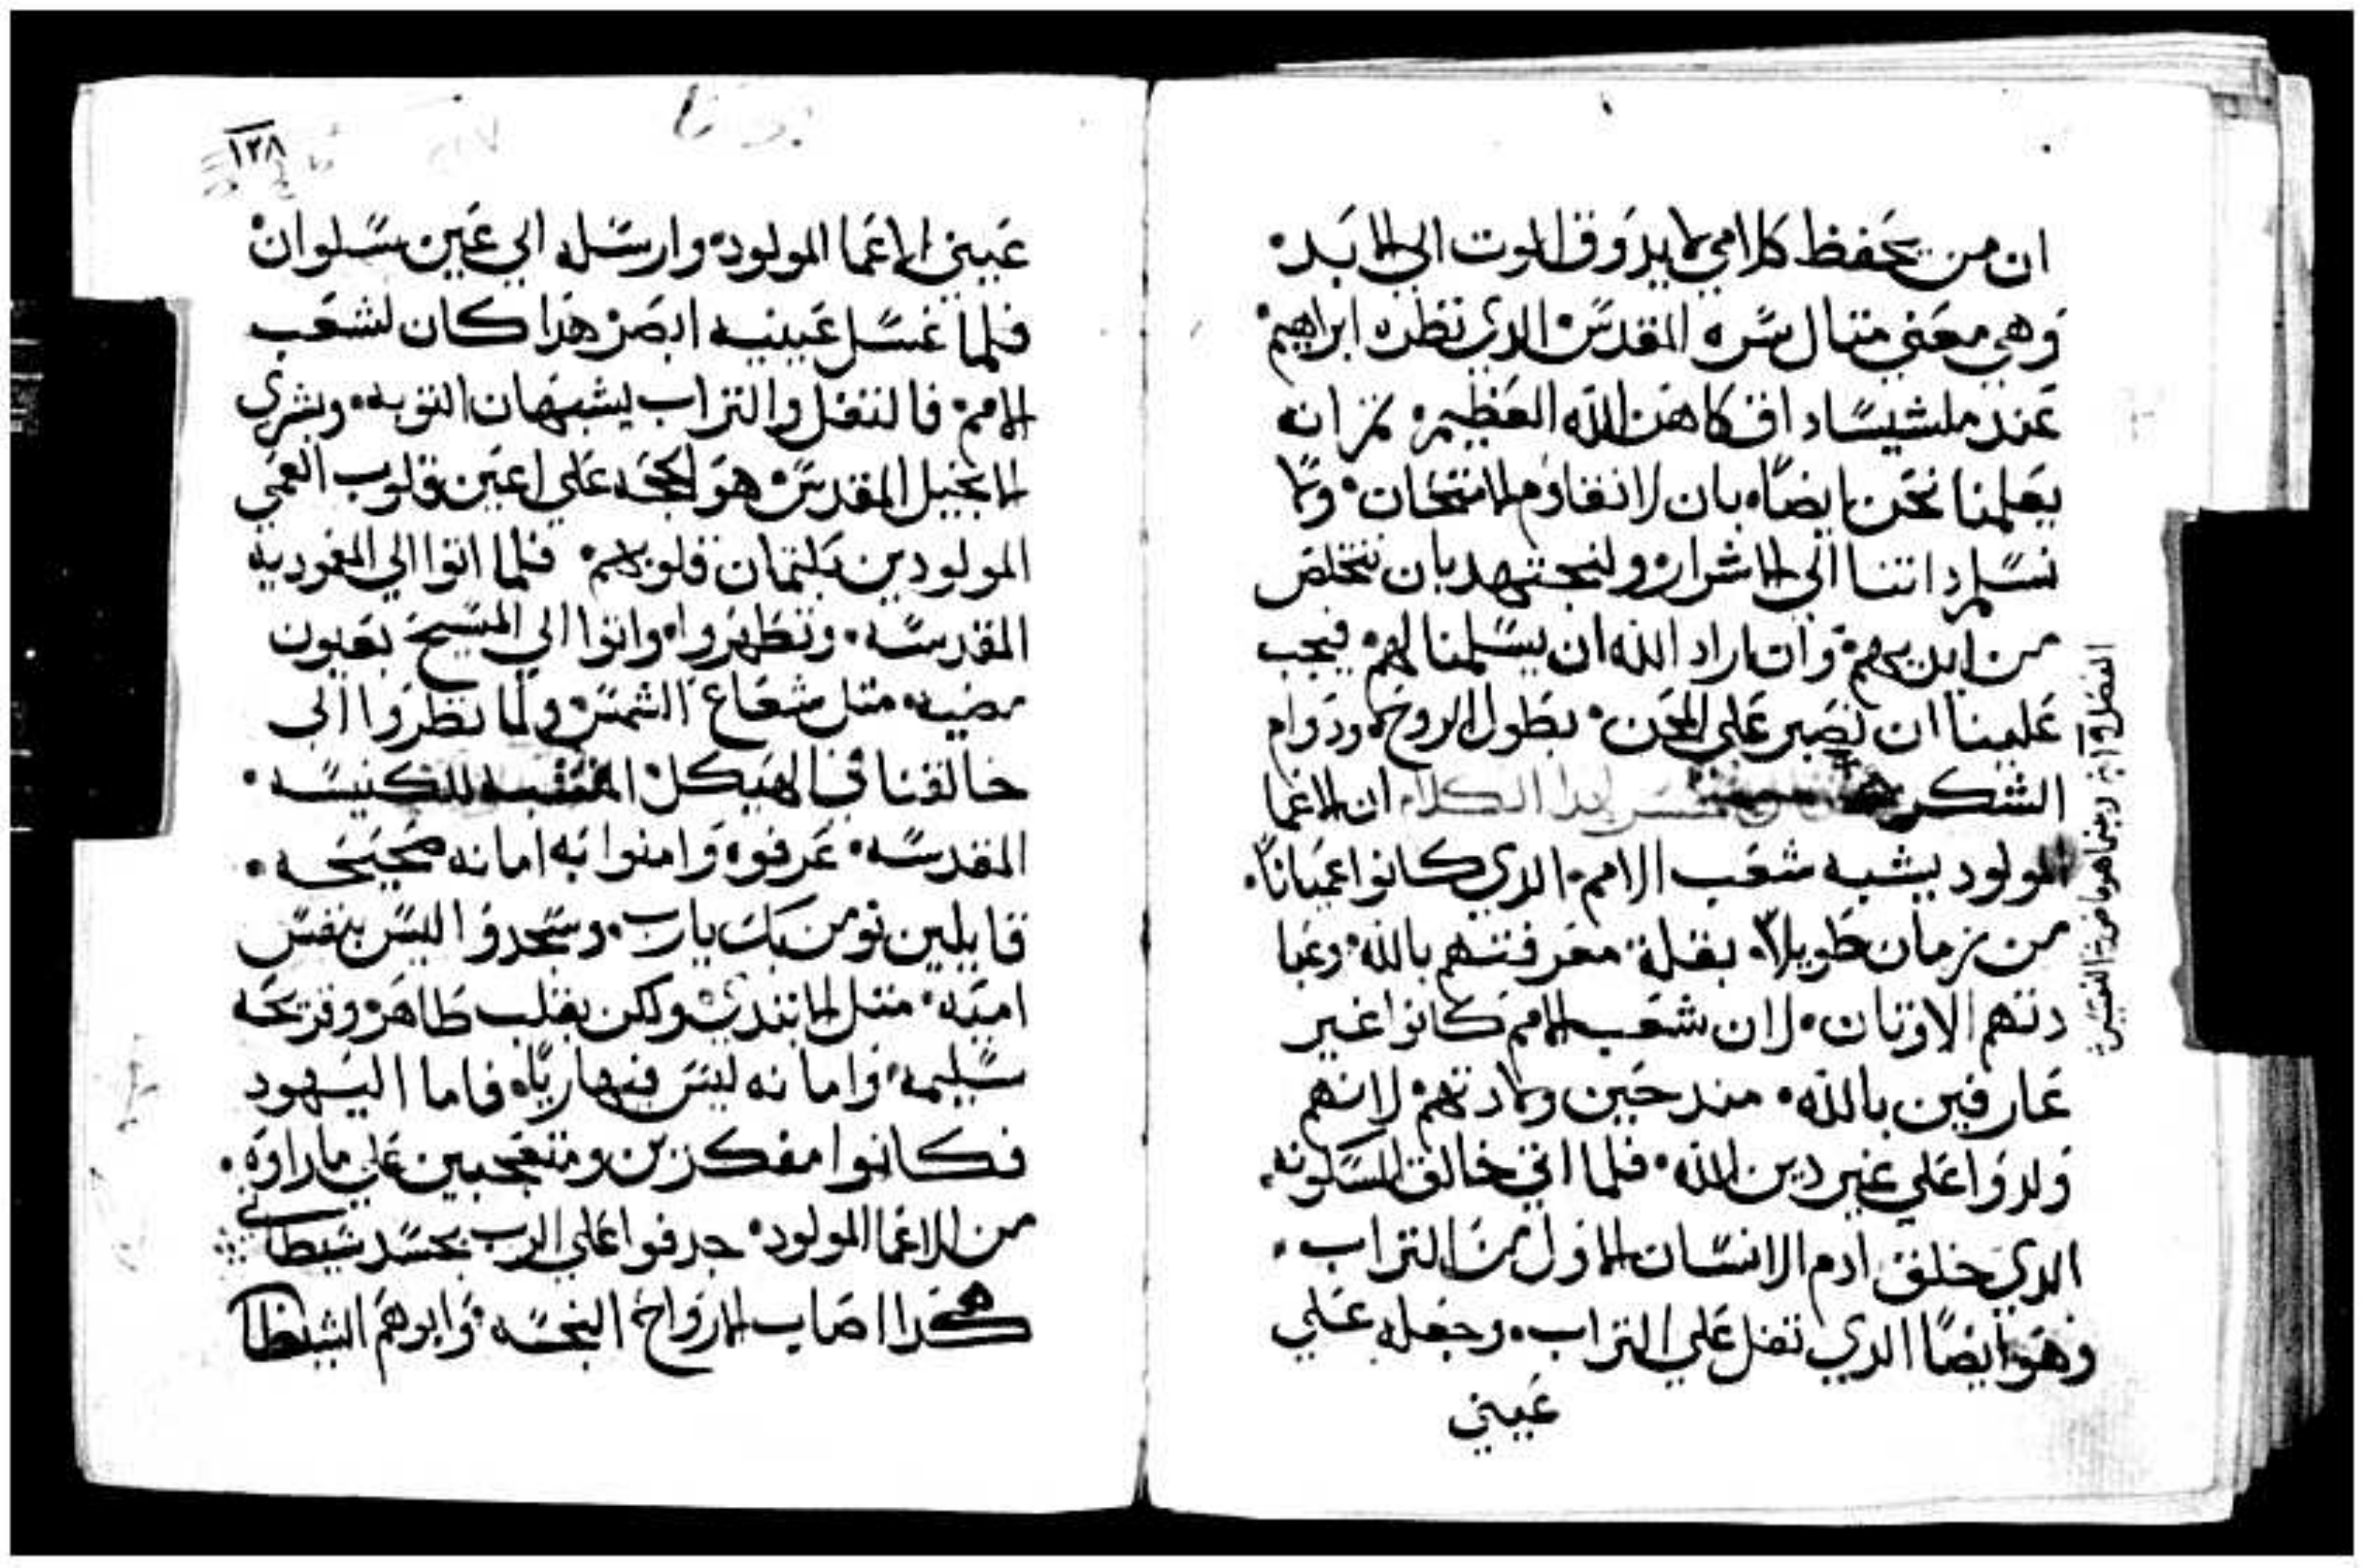 ان من يحفظ كلامي لا يدوق الموت الي الابد
وهي معني متال سره المقدس الدي نظره ابراهيم
عند ملشيساداق كاهن الله العظيم تم انه
يعلمنا نحن ايضًا بان لا نقاوم الامتحان ولا
نسلم داتنا الي الاشرار ولنجتهد بان نتخلص
من ايديهم وان اراد الله ان يسلمنا لهم فيجب
علينا ان نصبر علي المحن بطول الروح ودوام
الشكر هدا الكلام ان الاعما
المولود يشبه شعب الامم الدي كانوا اعميانًا
من زمان طويلًا بقلة معرفتهم بالله وعبا
دتهم الاوتان لان شعب الامم كانوا غير
عارفين بالله مند حين ولادتهم لانهم
ولدوا علي غير دين الله فلما اتي خالق المسكونه
الدي خلق ادم الانسان الاول من التراب
وهو ايضًا الدي تفل علي التراب وجعله علي
عيني
١٢٨
عيني الاعما المولود وارسله الي عين سلوان
فلما غسل عينيه ابصر هدا كان لشعب
الامم فالتفل والتراب يشبهان التوبه وبشري
الانجيل المقدس هو الحجه علي اعين قلوب العمي
المولودين بكتمان قلوبهم فلما اتوا الي المعموديه
المقدسه وتطهروا واتوا الي المسيح بعيون
مضيه متل شعاع الشمس ولما نظروا الي
خالقنا في الهيكل للكنيسه
المقدسه عرفوه وامنوا به امانه صحيحه
قايلين نومن بك يارب وسجدوا ليس بنفس
اميه متل الابتدي ولكن بقلب طاهر وقريحه
سليمه وامانه ليس فيها رياه فاما اليهود
فكانوا مفكرين ومتعجبين علي ما راوه
من الاعما المولود جدفوا علي الرب بحسد شيطاني
هكدا اصاب الارواح النجسه وابوهم الشيطا